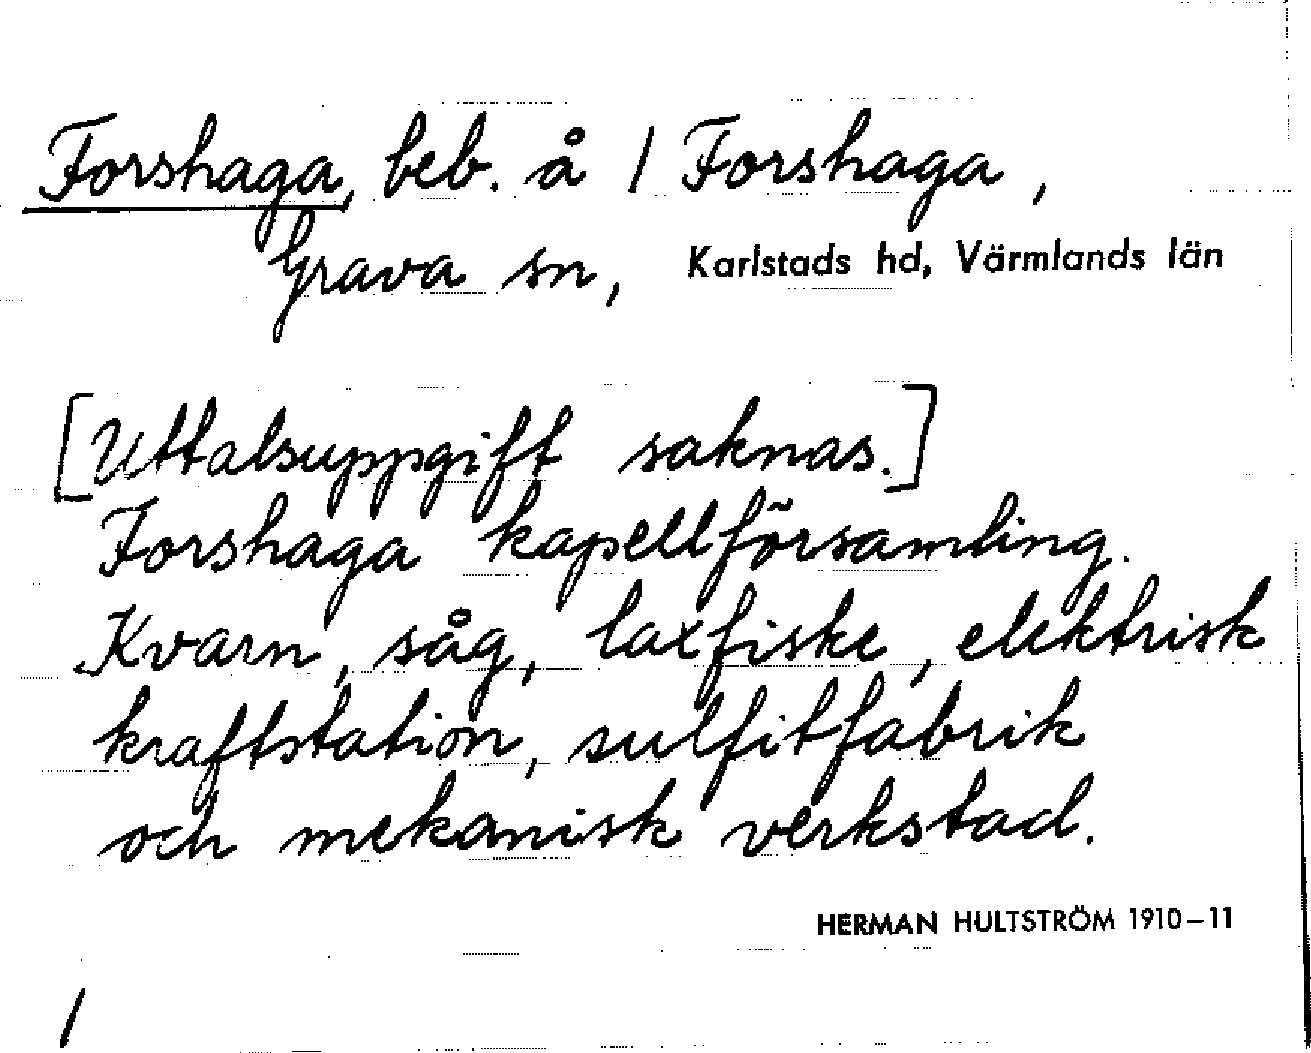 Forshaga, beb. å / Forshaga,
Grava sn, Karlstads hd, Värmlands län
[Uttalsuppgift saknas.]
Forshaga kapellförsamling.
Kvarn, såg, laxfiske, elektrisk
kraftstation, sulfitfabrik
och mekanisk verkstad.
HERMAN HULTSTRÖM 1910–11
/